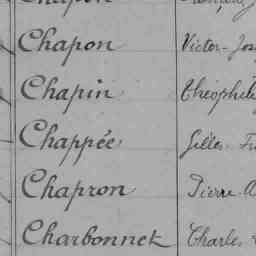 Chapon Victor-Jos
Chapin Théophile
Chappée Gilles
Chapron Pierre
Charbonnet Charles